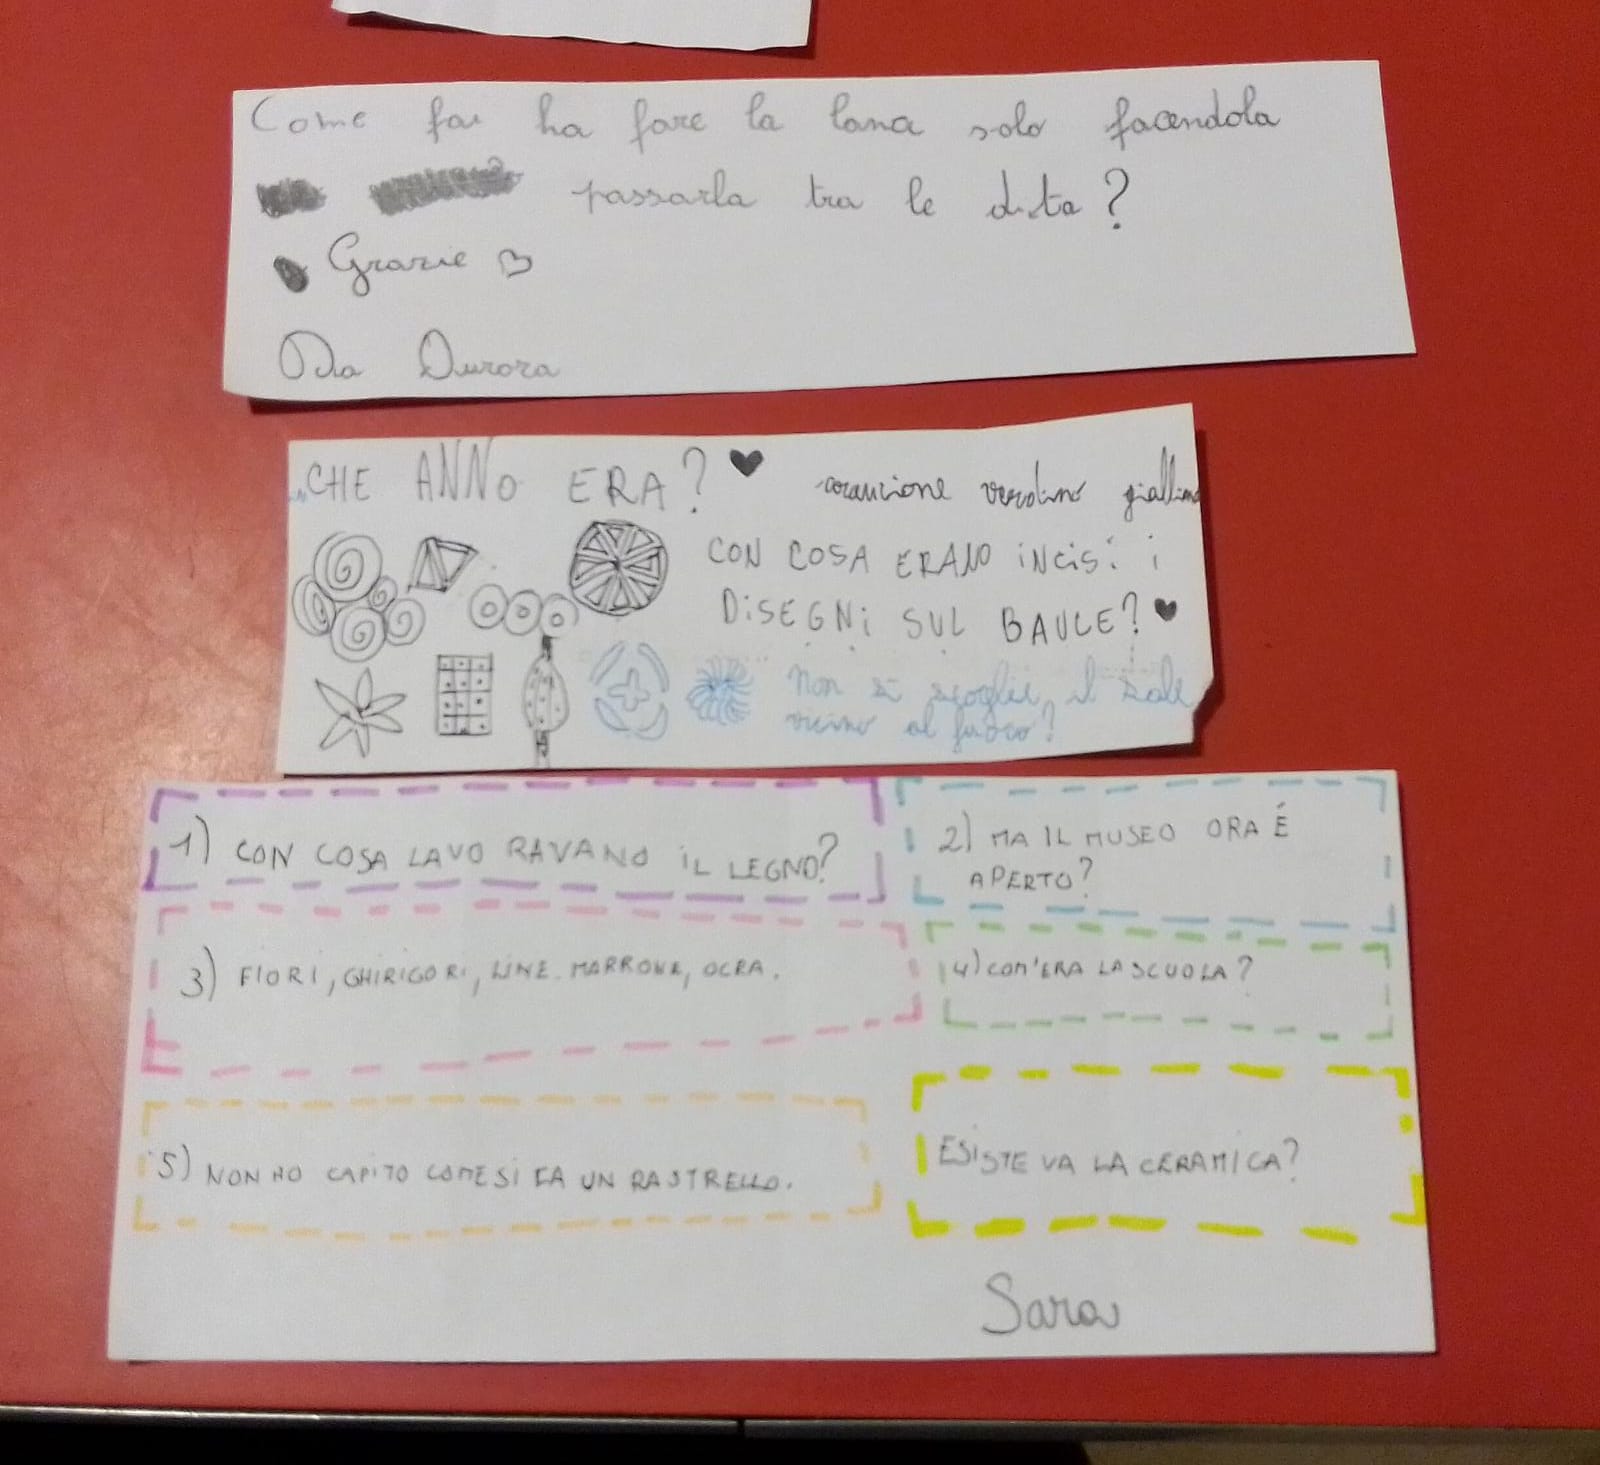 Come fai ha fare la lana solo facendola
passarla tra le dita?
Grazie
Da Aurora
CHE ANNO ERA?
arancione verdino giallino
CON COSA ERANO iNCiSi i
DiSEGNi SUL BAULE?
Non si scoglie, il sale
vicino al fuoco?
1) CON COSA LAVO RAVANO iL LEGNO?
2) MA IL MUSEO ORA É
APERTO?
3) FIORI, GHIRIGORI, LINE. MARRONE, OCRA.
4) COM'ERA LA SCUOLA?
5) NON HO CAPITO COME SI FA UN RASTRELLO.
ESISTE VA LA CERAMICA?
Sara